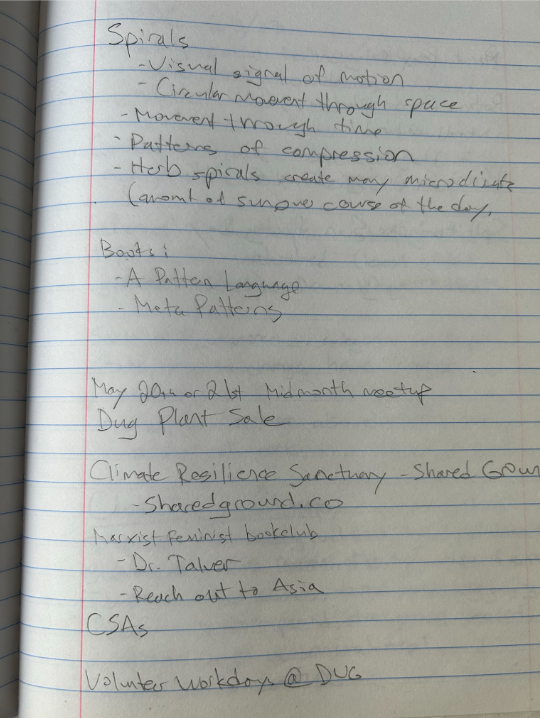 Spirals
- Visual signal of motion
- Circular movent through space
- Movent through time
- Patterns of compression
- Herb spirals create many microclimate
(amont of sun over course of the day.
Boots:
- A Patten Language
- Meta Patterns
May 20th or 21st Midmonth meetup
Dug Plant Sale
Climate Resilience Sanctuary - Shared Groun
- Sharedground.co
Marxist feminist bookclub
- Dr.
- Reach out to Asia
CSAs
Volunteer Workdays @ DUG